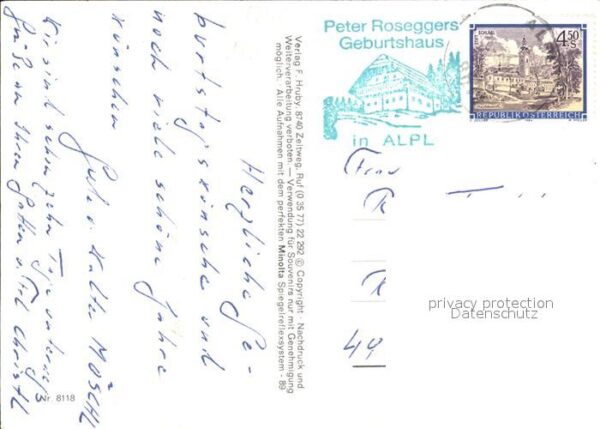 Herzliche Ge-
burtstagswünsche und
noch viele schöne Jahre
wünschen
Walter MÖSCHL
Wir sind schon zehn Tage unterwegs
Grüße an Ihren Gatten u. Christl
Verlag F. Hruby, 8740 Zeltweg, Ruf (0 35 77) 22 292 © Copyright - Nachdruck und
Weiterverarbeitung verboten. — Verwendung für Souvenirs nur mit Genehmigung
möglich. Alle Aufnahmen mit dem perfekten Minolta Spiegelreflexsystem - 89
Nr 8118
Peter Roseggers
Geburtshaus
in ALPL
4.50
S
REPUBLIK ÖSTERREICH
Frau
R
R
44
privacy protection
Datenschutz